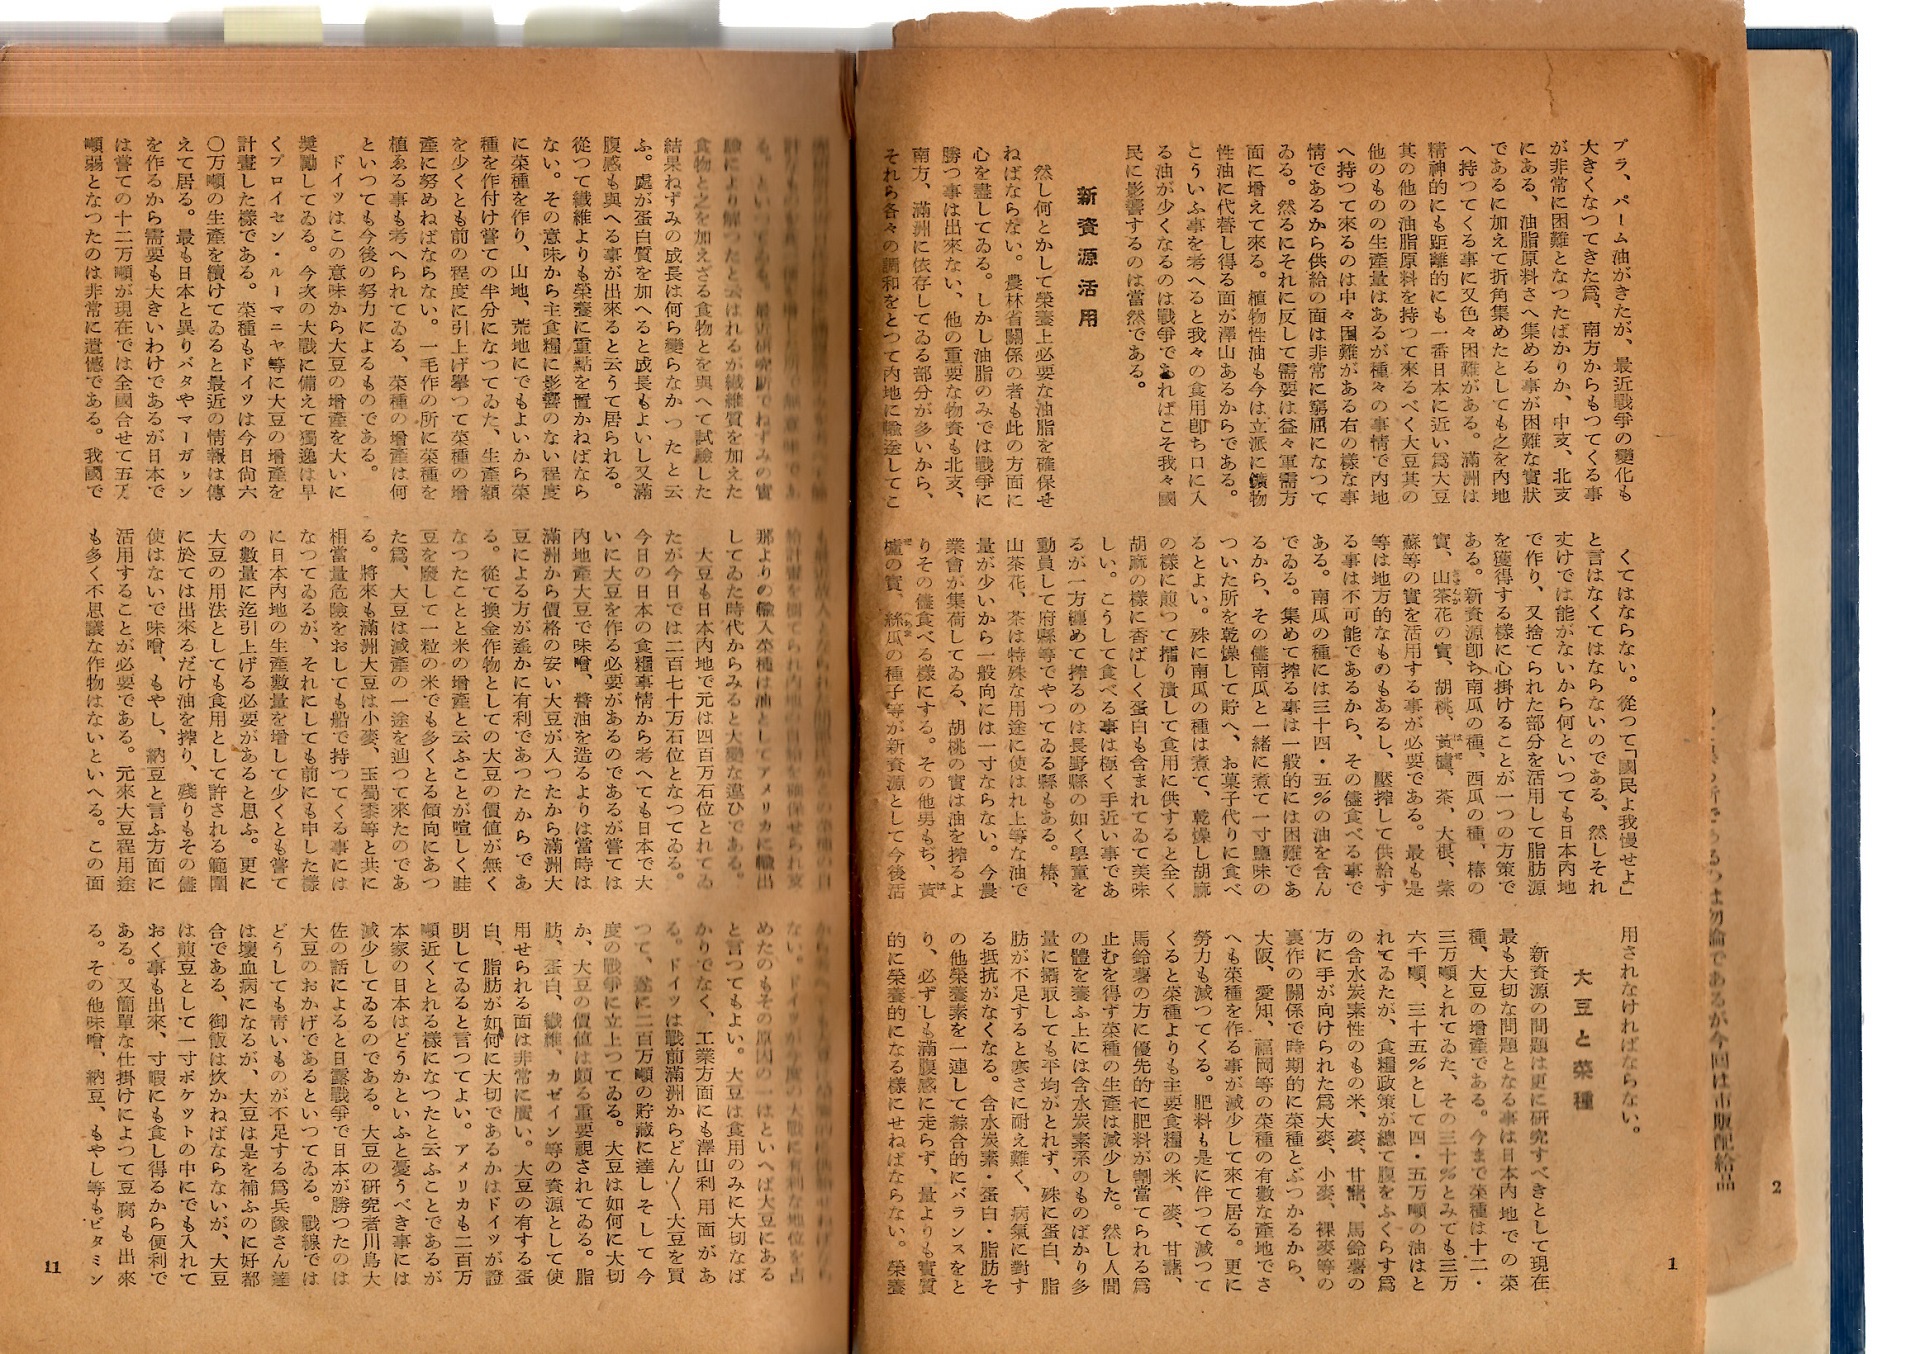 ブラ、パーム油がきたが、最近戰爭の變化も
大きくなつてきた爲、南方からもつてくる事
が非常に困難となつたばかりか、中支、北支
にある、油脂原料さへ集める事が困難な實狀
であるに加えて折角集めたとしても之を内地
へ持つてくる事に又色々困難がある。滿洲は
精神的にも距離的にも一番日本に近い爲大豆
其の他の油脂原料を持つて來るべく大豆其の
他のものの生產量はあるが種々の事情で内地
へ持つて來るのは中々困難がある右の樣な事
情であるから供給の面は非常に窮屈になつて
ゐる。然るにそれに反して需要は益々軍需方
面に增えて來る。植物性油も今は立派に鑛物
性油に代替し得る面が澤山あるからである。
こういふ事を考へると我々の食用卽ち口に入
る油が少くなるのは戰爭であればこそ我々國
民に影響するのは當然である。
新資源活用
然し何とかして榮養上必要な油脂を確保せ
ねばならない。農林省關係の者も此の方面に
心を盡してゐる。しかし油脂のみでは戰爭に
勝つ事は出來ない、他の重要な物資も北支、
南方、滿洲に依存してゐる部分が多いから、
それら各々の調和をとつて内地に輸送してこ
くてはならない。從つて「國民よ我慢せよ」
と言はなくてはならないのである、然しそれ
丈けでは能がないから何といつても日本内地
で作り、又捨てられた部分を活用して脂肪源
を獲得する樣に心掛けることが一つの方策で
ある。新資源卽ち南瓜の種、西瓜の種、椿の
實、山茶花の實、胡桃、黃櫨、茶、大根、紫
蘇等の實を活用する事が必要である。最も是
等は地方的なものもあるし、壓搾して供給す
る事は不可能であるから、その儘食べる事で
ある。南瓜の種には三十四・五％の油を含ん
でゐる。集めて搾る事は一般的には困難であ
るから、その儘南瓜と一緖に煮て一寸鹽味の
ついた所を乾燥して貯へ、お菓子代りに食べ
るとよい。殊に南瓜の種は煮て、乾燥し胡麻
の樣に煎つて擂り潰して食用に供すると全く
胡麻の樣に香ばしく蛋白も含まれてゐて美味
しい。こうして食べる事は極く手近い事であ
るが一方纏めて搾るのは長野縣の如く學童を
動員して府縣等でやつてゐる縣もある。椿、
山茶花、茶は特殊な用途に使はれ上等な油で
量が少いから一般向には一寸ならない。今農
業會が集荷してゐる、胡桃の實は油を搾るよ
りその儘食べる樣にする。その他男もぢ、黃
櫨の實、絲瓜の種子等が新資源として今後活
用されなければならない。
大豆と菜種
新資源の問題は更に硏究すべきとして現在
最も大切な問題となる事は日本内地での菜
種、大豆の增產である。今まで菜種は十二・
三万噸とれてゐた、その三十％とみても三万
六千噸、三十五％として四・五万噸の油はと
れてゐたが、食糧政策が總て腹をふくらす爲
の含水炭素性のもの米、麥、甘藷、馬鈴薯の
方に手が向けられた爲大麥、小麥、裸麥等の
裏作の關係で時期的に菜種とぶつかるから、
大阪、愛知、福岡等の菜種の有數な產地でさ
へも菜種を作る事が減少して來て居る。更に
勞力も減つてくる。肥料も是に伴つて減つて
くると菜種よりも主要食糧の米、麥、甘藷、
馬鈴薯の方に優先的に肥料が割當てられる爲
止むを得ず菜種の生產は減少した。然し人間
の體を養ふ上には含水炭素系のものばかり多
量に攝取しても平均がとれず、殊に蛋白、脂
肪が不足すると寒さに耐え難く、病氣に對す
る抵抗がなくなる。含水炭素・蛋白・脂肪そ
の他榮養素を一連して綜合的にバランスをと
り、必ずしも滿腹感に走らず、量よりも實質
的に榮養的になる樣にせねばならない。榮養
1
2
は勿論であるが今回は市販配給品
る。といつてゐる。最近硏究所でねずみの實
驗により解つたと云はれるが纖維質を加えた
食物と之を加えざる食物とを與へて試驗した
結果ねずみの成長は何ら變らなかつたと云
ふ。處が蛋白質を加へると成長もよいし又滿
腹感も與へる事が出來ると云うて居られる。
從つて纖維よりも榮養に重點を置かねばなら
ない。その意味から主食糧に影響のない程度
に菜種を作り、山地、荒地にでもよいから菜
種を作付け嘗ての半分になつてゐた、生產額
を少くとも前の程度に引上げ擧つて菜種の增
產に努めねばならない。一毛作の所に菜種を
植ゑる事も考へられてゐる、菜種の增產は何
といつても今後の努力によるものである。
ドイツはこの意味から大豆の增產を大いに
奬勵してゐる。今次の大戰に備えて獨逸は早
くプロイセン・ルーマニヤ等に大豆の增產を
計畫した樣である。菜種もドイツは今日尙六
〇万噸の生產を續けてゐると最近の情報は傳
えて居る。最も日本と異りバタやマーガリン
を作るから需要も大きいわけであるが日本で
は嘗ての十二万噸が現在では全國合せて五万
噸弱となつたのは非常に遺憾である。我國で
那よりの輸入菜種は油としてアメリカに輸出
してゐた時代からみると大變な違ひである。
大豆も日本内地で元は四百万石位とれてゐ
たが今日では二百七十万石位となつてゐる。
今日の日本の食糧事情から考へても日本で大
いに大豆を作る必要があるのであるが嘗ては
内地產大豆で味噌、醬油を造るよりは當時は
滿洲から價格の安い大豆が入つたから滿洲大
豆による方が遙かに有利であつたからであ
る。從て換金作物としての大豆の價値が無く
なつたことと米の增產と云ふことが喧しく畦
豆を廢して一粒の米でも多くとる傾向にあつ
た爲、大豆は減產の一途を辿つて來たのであ
る。將來も滿洲大豆は小麥、玉蜀黍等と共に
相當量危險をおしても船で持つてくる事には
なつてゐるが、それにしても前にも申した樣
に日本内地の生產數量を增して少くとも嘗て
の數量に迄引上げる必要があると思ふ。更に
大豆の用法としても食用として許される範圍
に於ては出來るだけ油を搾り、殘りもその儘
使はないで味噌、もやし、納豆と言ふ方面に
活用することが必要である。元來大豆程用途
も多く不思議な作物はないといへる。この面
めたのもその原因の一はといへば大豆にある
と言つてもよい。大豆は食用のみに大切なば
かりでなく、工業方面にも澤山利用面があ
る。ドイツは戰前滿洲からどん〱大豆を買
つて、遂に二百万噸の貯藏に達しそして今
度の戰爭に立上つてゐる。大豆は如何に大切
か、大豆の價値は頗る重要視されてゐる。脂
肪、蛋白、纖維、カゼイン等の資源として使
用せられる面は非常に廣い。大豆の有する蛋
白、脂肪が如何に大切であるかはドイツが證
明してゐると言つてよい。アメリカも二百万
噸近くとれる樣になつたと云ふことであるが
本家の日本はどうかといふと憂うべき事には
減少してゐるのである。大豆の硏究者川島大
佐の話によると日露戰爭で日本が勝つたのは
大豆のおかげであるといつてゐる。戰線では
どうしても靑いものが不足する爲兵隊さん達
は壞血病になるが、大豆は是を補ふのに好都
合である、御飯は炊かねばならないが、大豆
は煎豆として一寸ポケットの中にでも入れて
おく事も出來、寸暇にも食し得るから便利で
ある。又簡單な仕掛けによつて豆腐も出來
る。その他味噌、納豆、もやし等もビタミン
11